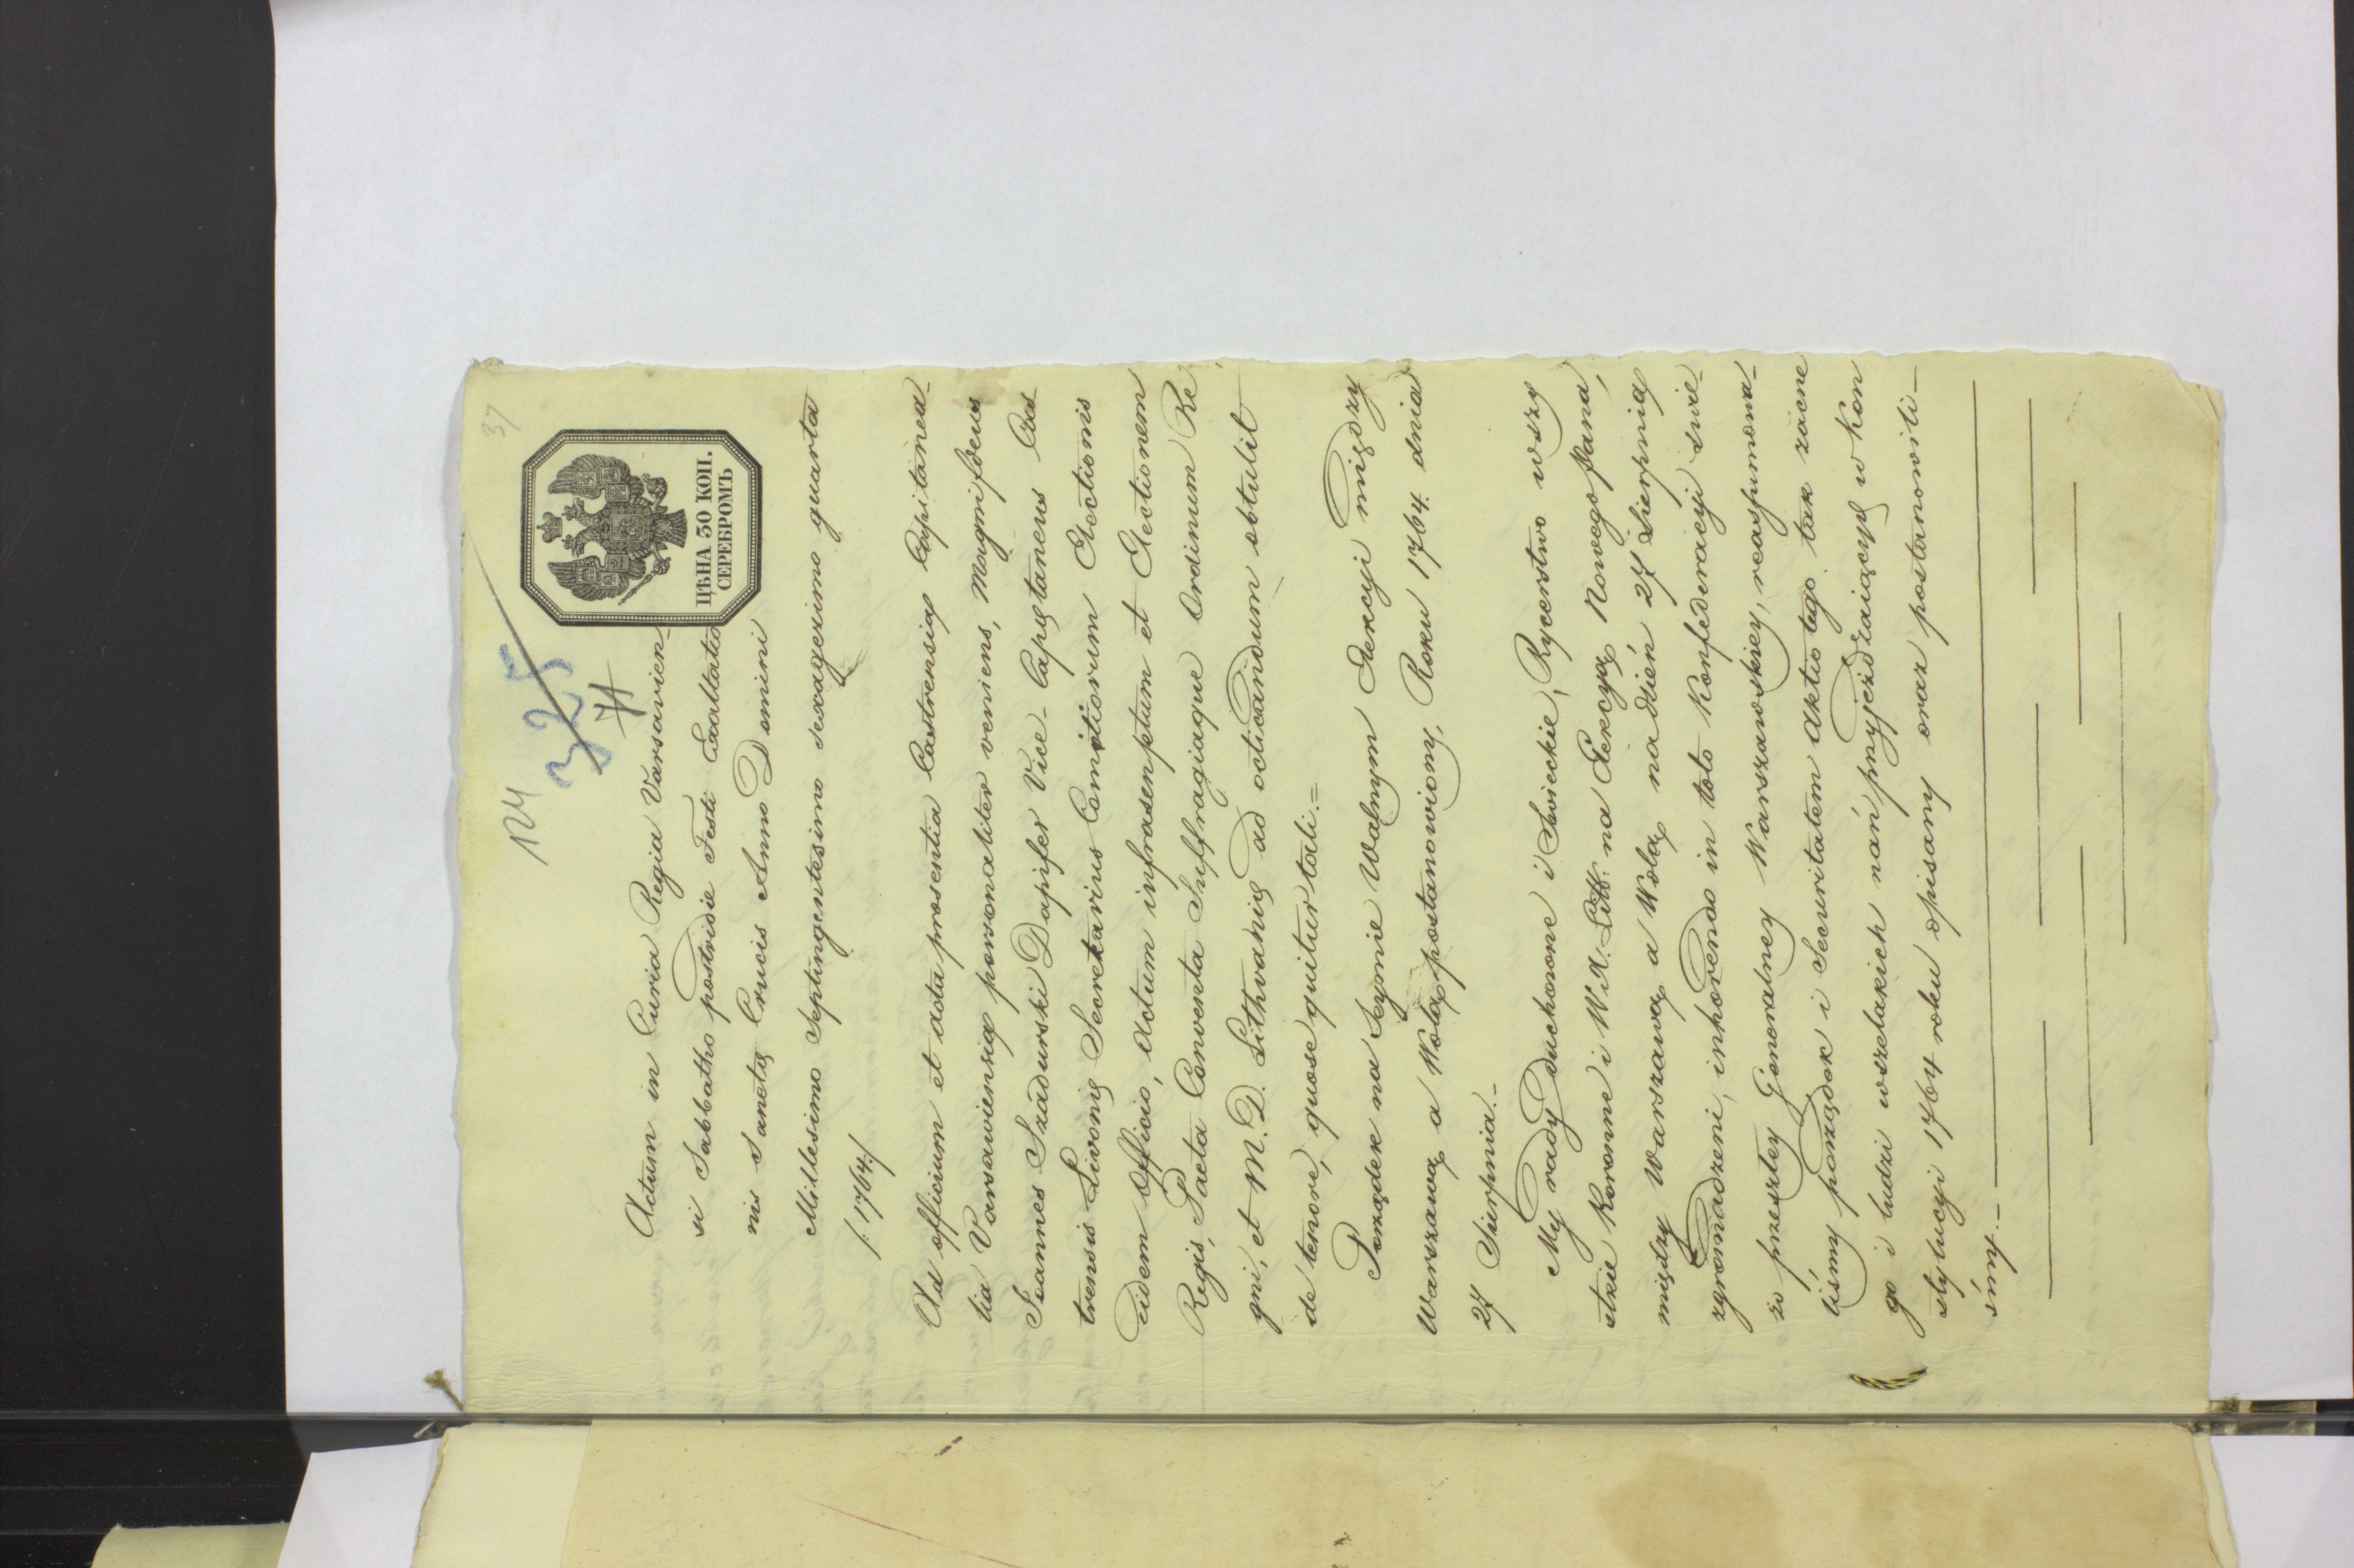 37
124
325
71
ЦѢНА 30 КОП.
СЕРЕБРОМЪ
Actum in Curia Regia Varsavien-
si Sabbatho postridie Festi Exaltatio
nis Sanctę Crucis Anno Domini
Millesimo Septingentesimo sexagesimo quarta
/: 1764 :/
Ad officium et acta presentia Castrensia Capitanea-
lia Varsaviensia personaliter veniens, Magnificus
Joannes Szadurski Dapifer Vice-Capętaneus Cas
trensis Livonię Secretarius Comitiorum Electionis
eidem officio, actum infrascriptum et Electionem
Regis, Pacta Conventa Suffragiaque Ordinum Re
gni, et M. D. Lithvanię ad acticandum obtulit
de tenore, quose quitur tali.=
Porządek na Seymie Walnym Elekcyi między
Warszawą a Wolą postanowiony, Roku 1764. dnia
27 Sierpnia.-
My rady duchowne i Swieckie, Rycerstwo wszy
stkie Koronne i W. X. Litt: na Elekcyą Nowego Pana,
między Warszawą a Wolą na dzień 27 Sierpnia
zgromadzeni, inhærendo in toto Konfederacyi swie-
żo przeszłey Generalney Warszawskiey, reassumowa-
liśmy porządek i Securitatem aktio tego. tak zacne
go i ludzi wszelakich nań przyjeżdzaiącyh w Kon
stytucyi 1764 roku opisany oraz postanowili-
śmy.-